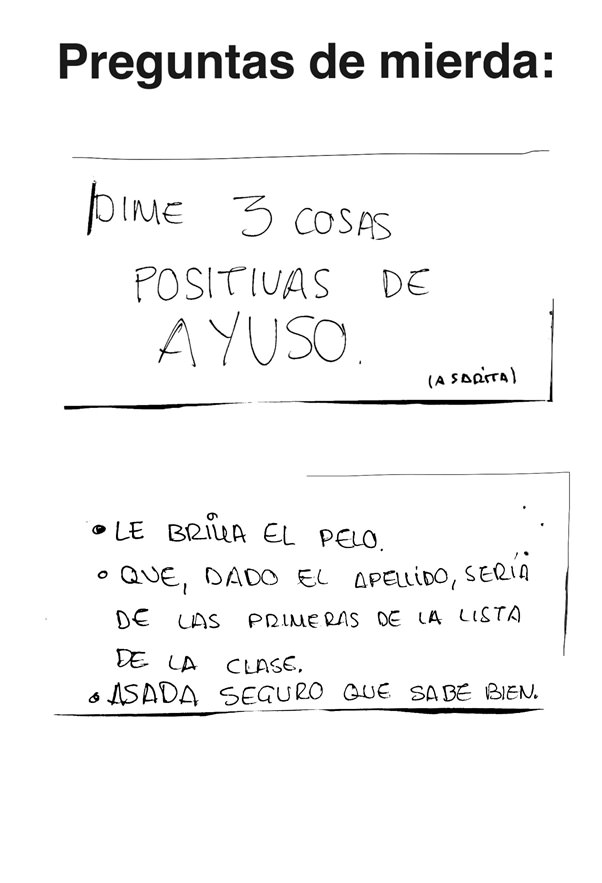 Preguntas de mierda:
DIME 3 COSAS
POSITIVAS DE
AYUSO.
(A SARITA)
• LE BRILLA EL PELO.
• QUE, DADO EL APELLIDO, SERÍA
DE LAS PRIMERAS DE LA LISTA
DE LA CLASE.
• ASADA SEGURO QUE SABE BIEN.